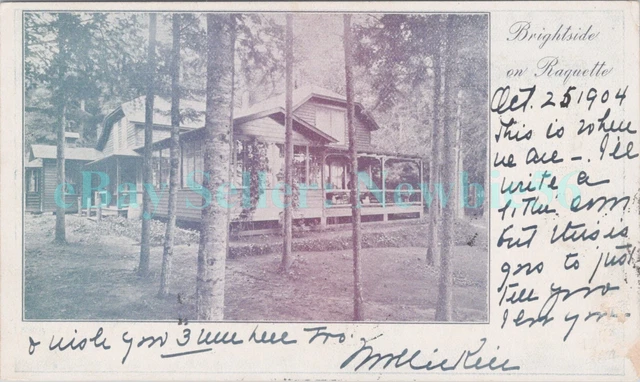 Brightside
on Raquette
Oct. 25 1904
this is where
we are -. I'll
write a
little
but this is
to just
Tell you
you
& wish you 3 were here too.
eBay Seller: Newbie56